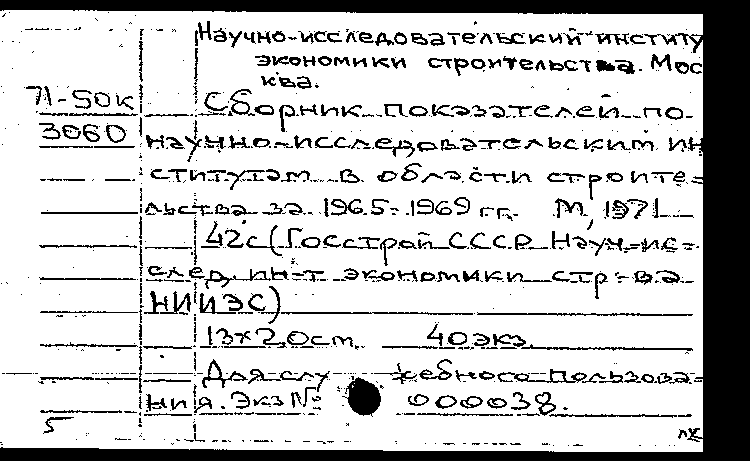 Научно-исследовательский институ
экономики строительства. Мос
ква.
71-50к Сборник показателей по
3060 научно-исследовательским ин
ститутам в области строите=
льства за 1965-1969 гг. М, 1971
42с (Госстрой СССР Науч-ис=
след. ин-т экономики стр-ва
НИИЭС)
13х20ст. 40экз.
Для слу жебного пользова=
ния. Экз № 000038.
5